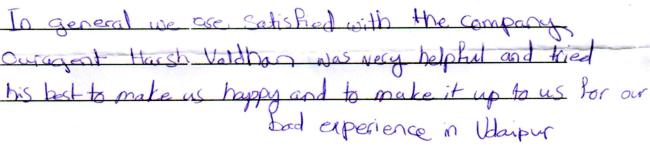 In general we are satisfied with the company,
Our agent Harsh Valdhan was very helpful and tried
his best to make us happy and to make it up to us for our
bad experience in Udaipur